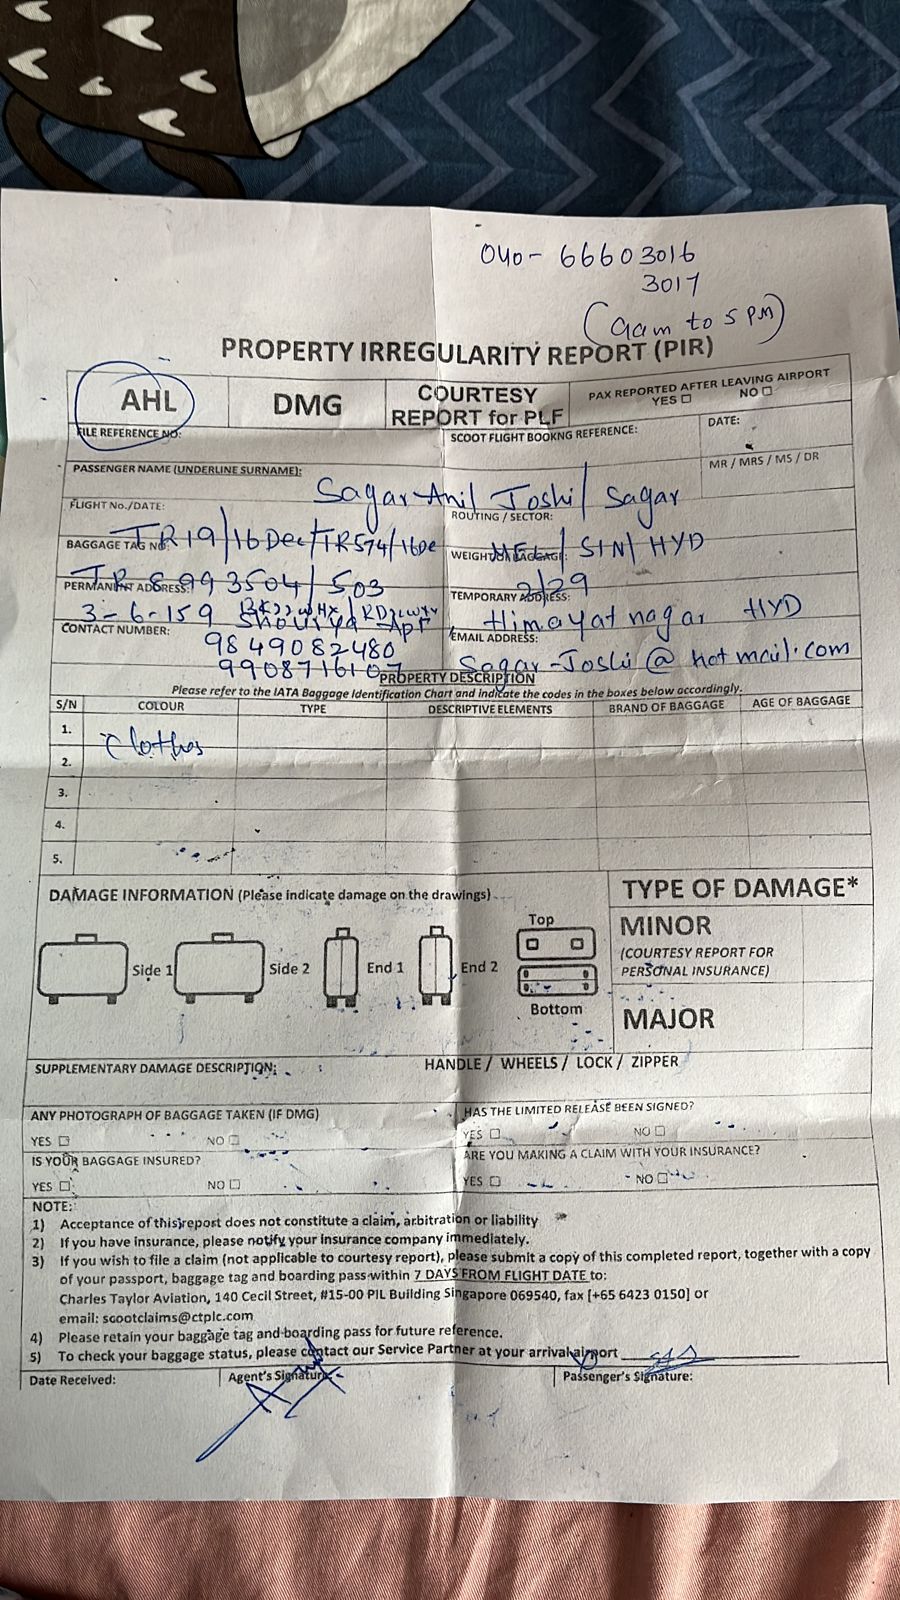 040- 66603016
3017
(9am to 5 PM)
PROPERTY IRREGULARITY REPORT (PIR)
AHL
DMG
COURTESY REPORT for PLF
PAX REPORTED AFTER LEAVING AIRPORT
YES ☐ NO ☐
FILE REFERENCE NO:
SCOOT FLIGHT BOOKNG REFERENCE:
DATE:
PASSENGER NAME (UNDERLINE SURNAME):
MR / MRS / MS / DR
Sagar Anil Joshi / Sagar
FLIGHT No./DATE:
ROUTING / SECTOR:
TR19/16Dec/TR574/16De
MEL / SIN/ HYD
BAGGAGE TAG NO:
WEIGHT OF BAGGAGE:
TR 8993504/503
2/29
PERMANENT ADDRESS:
TEMPORARY ADDRESS:
3-6-159
Himayat nagar HYD
CONTACT NUMBER:
EMAIL ADDRESS:
9849082480
9908716107
Sagar-Joshi@hotmail.com
PROPERTY DESCRIPTION
Please refer to the IATA Baggage Identification Chart and indicate the codes in the boxes below accordingly.
S/N COLOUR TYPE DESCRIPTIVE ELEMENTS BRAND OF BAGGAGE AGE OF BAGGAGE
1.
Clothes
2.
3.
4.
5.
DAMAGE INFORMATION (Please indicate damage on the drawings)
TYPE OF DAMAGE*
Side 1 Side 2 End 1 End 2 Top
Bottom
MINOR
(COURTESY REPORT FOR
PERSONAL INSURANCE)
MAJOR
SUPPLEMENTARY DAMAGE DESCRIPTION: HANDLE / WHEELS / LOCK / ZIPPER
ANY PHOTOGRAPH OF BAGGAGE TAKEN (IF DMG)
YES ☐ NO ☐
HAS THE LIMITED RELEASE BEEN SIGNED?
YES ☐ NO ☐
IS YOUR BAGGAGE INSURED?
YES ☐ NO ☐
ARE YOU MAKING A CLAIM WITH YOUR INSURANCE?
YES ☐ NO ☐
NOTE:
1) Acceptance of this report does not constitute a claim, arbitration or liability
2) If you have insurance, please notify your insurance company immediately.
3) If you wish to file a claim (not applicable to courtesy report), please submit a copy of this completed report, together with a copy
of your passport, baggage tag and boarding pass within 7 DAYS FROM FLIGHT DATE to:
Charles Taylor Aviation, 140 Cecil Street, #15-00 PIL Building Singapore 069540, fax [+65 6423 0150] or
email: scootclaims@ctplc.com
4) Please retain your baggage tag and boarding pass for future reference.
5) To check your baggage status, please contact our Service Partner at your arrival airport
Date Received: Agent's Signature: Passenger's Signature: